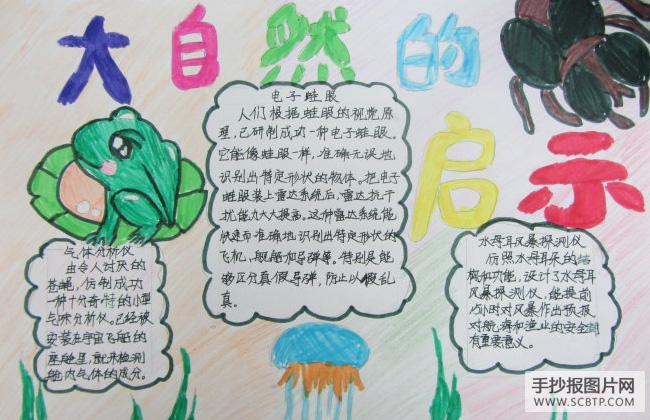 大自然的
启示
电子蛙眼
人们根据蛙眼的视觉原
理,已研制成功一种电子蛙眼。
它能像蛙眼一样,准确无误地
识别出特定形状的物体。把电子
蛙眼装上雷达系统后,雷达抗干
扰能力大大提高。这种雷达系统能
快速而准确地识别出特定形状的
飞机、舰船和导弹等。特别是能
够区分真假导弹,防止以假乱
真。
气体分析仪
由令人讨厌的
苍蝇,仿制成功
一种十分奇特的小型
气体分析仪。已经被
安装在宇宙飞船的
座舱里,用来检测
舱内气体的成分。
水母耳风暴探测仪
仿照水母耳朵的结
构和功能,设计了水母耳
风暴探测仪,能提前
15小时对风暴作出预报
对航海和渔业的安全都
有重要意义。
手抄报图片网
WWW.SCBTP.COM